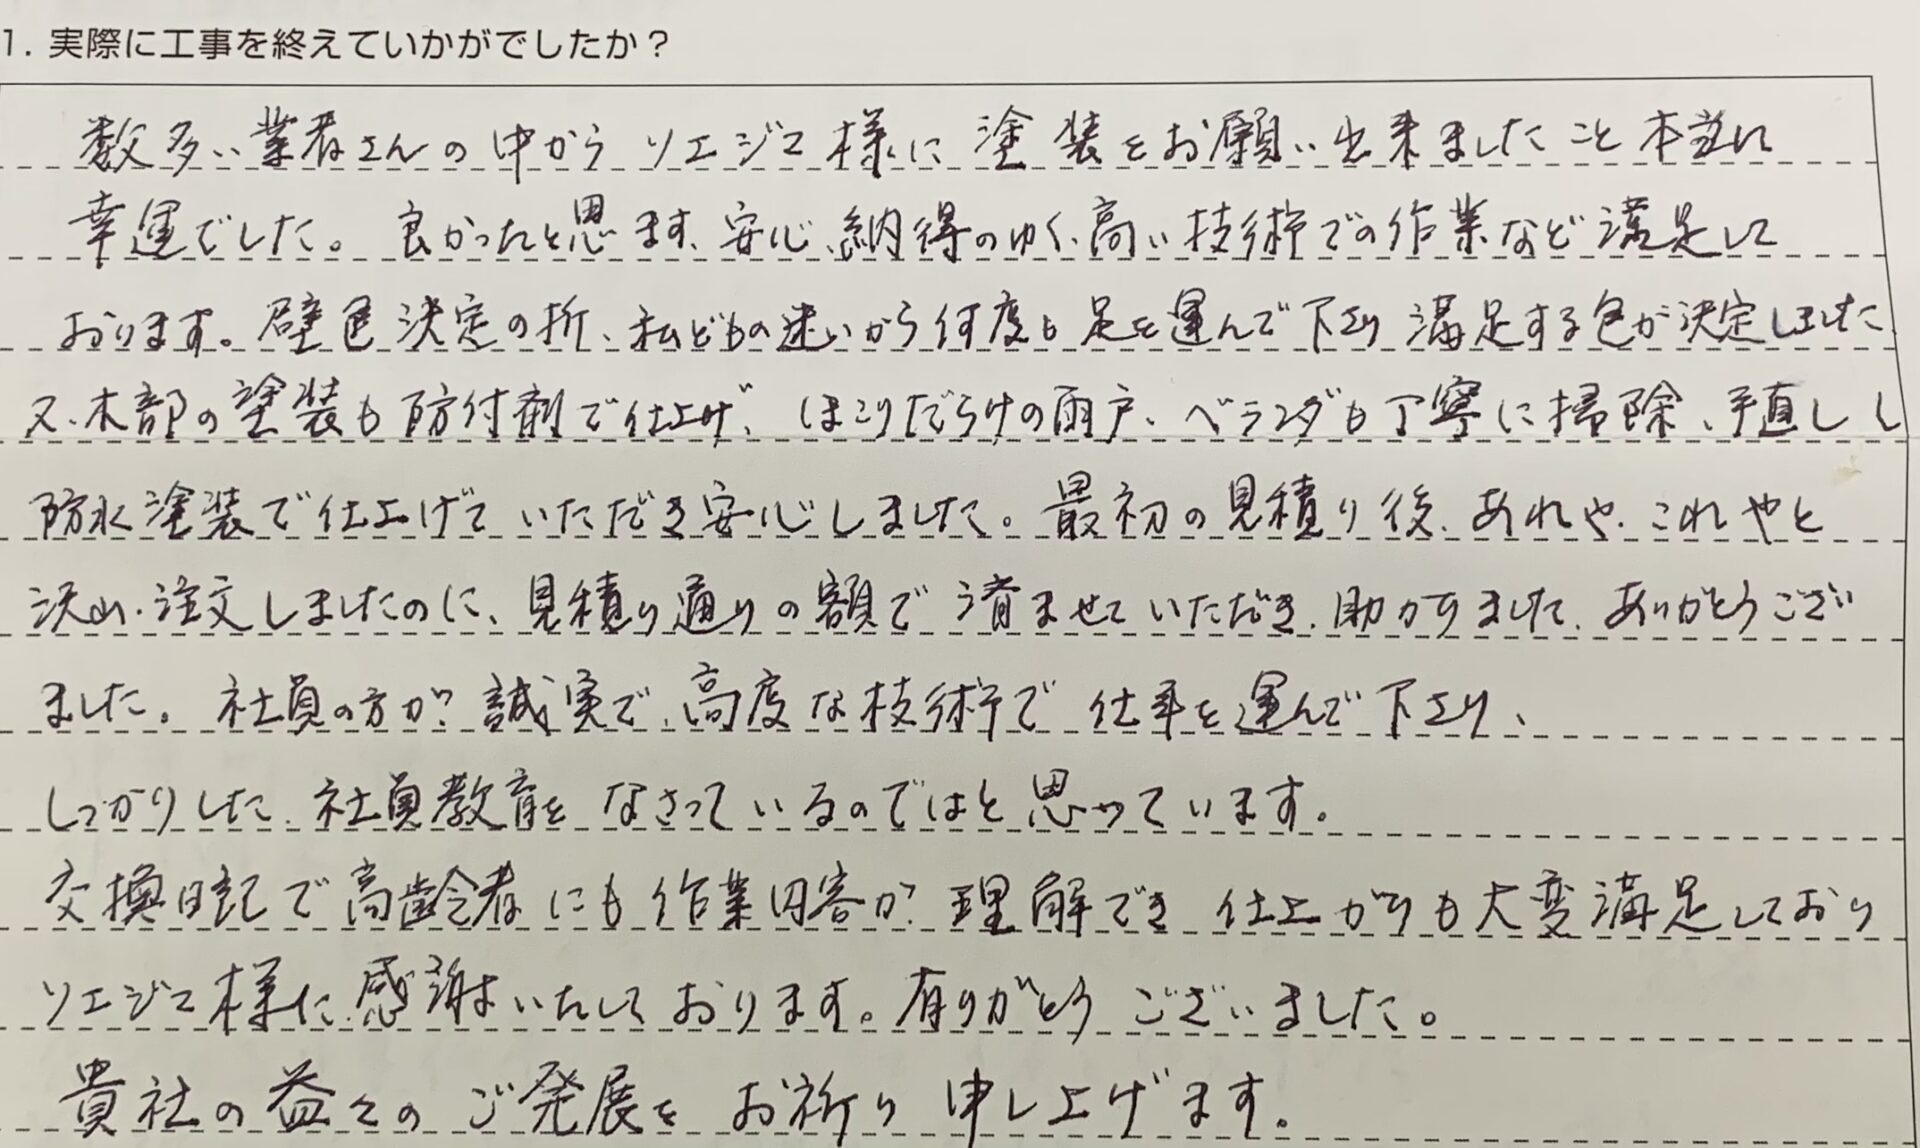 1. 実際に工事を終えていかがでしたか？
数多い業者さんの中からソエジマ様に塗装をお願い出来ましたこと本当に
幸運でした。良かったと思ます、安心、納得のゆく、高い技術での作業など満足して
おります。壁色決定の折、私どもの迷いから何度も足を運んで下さり満足する色が決定しました。
又、木部の塗装も防付剤で仕上げ、ほこりだらけの雨戸、ベランダも丁寧に掃除、手直しし
防水塗装で仕上げていただき安心しました。最初の見積り後、あれや、これやと
沢山、注文しましたのに、見積り通りの額で済ませていただき、助かりました、ありがとうござい
ました。社員の方が誠実で、高度な技術で仕事を運んで下さり、
しっかりした、社員教育をなさっているのではと思っています。
交換日記で高齢者にも作業内容が理解でき仕上がりも大変満足しており
ソエジマ様に感謝いたしております。有りがとうございました。
貴社の益々のご発展をお祈り申し上げます。